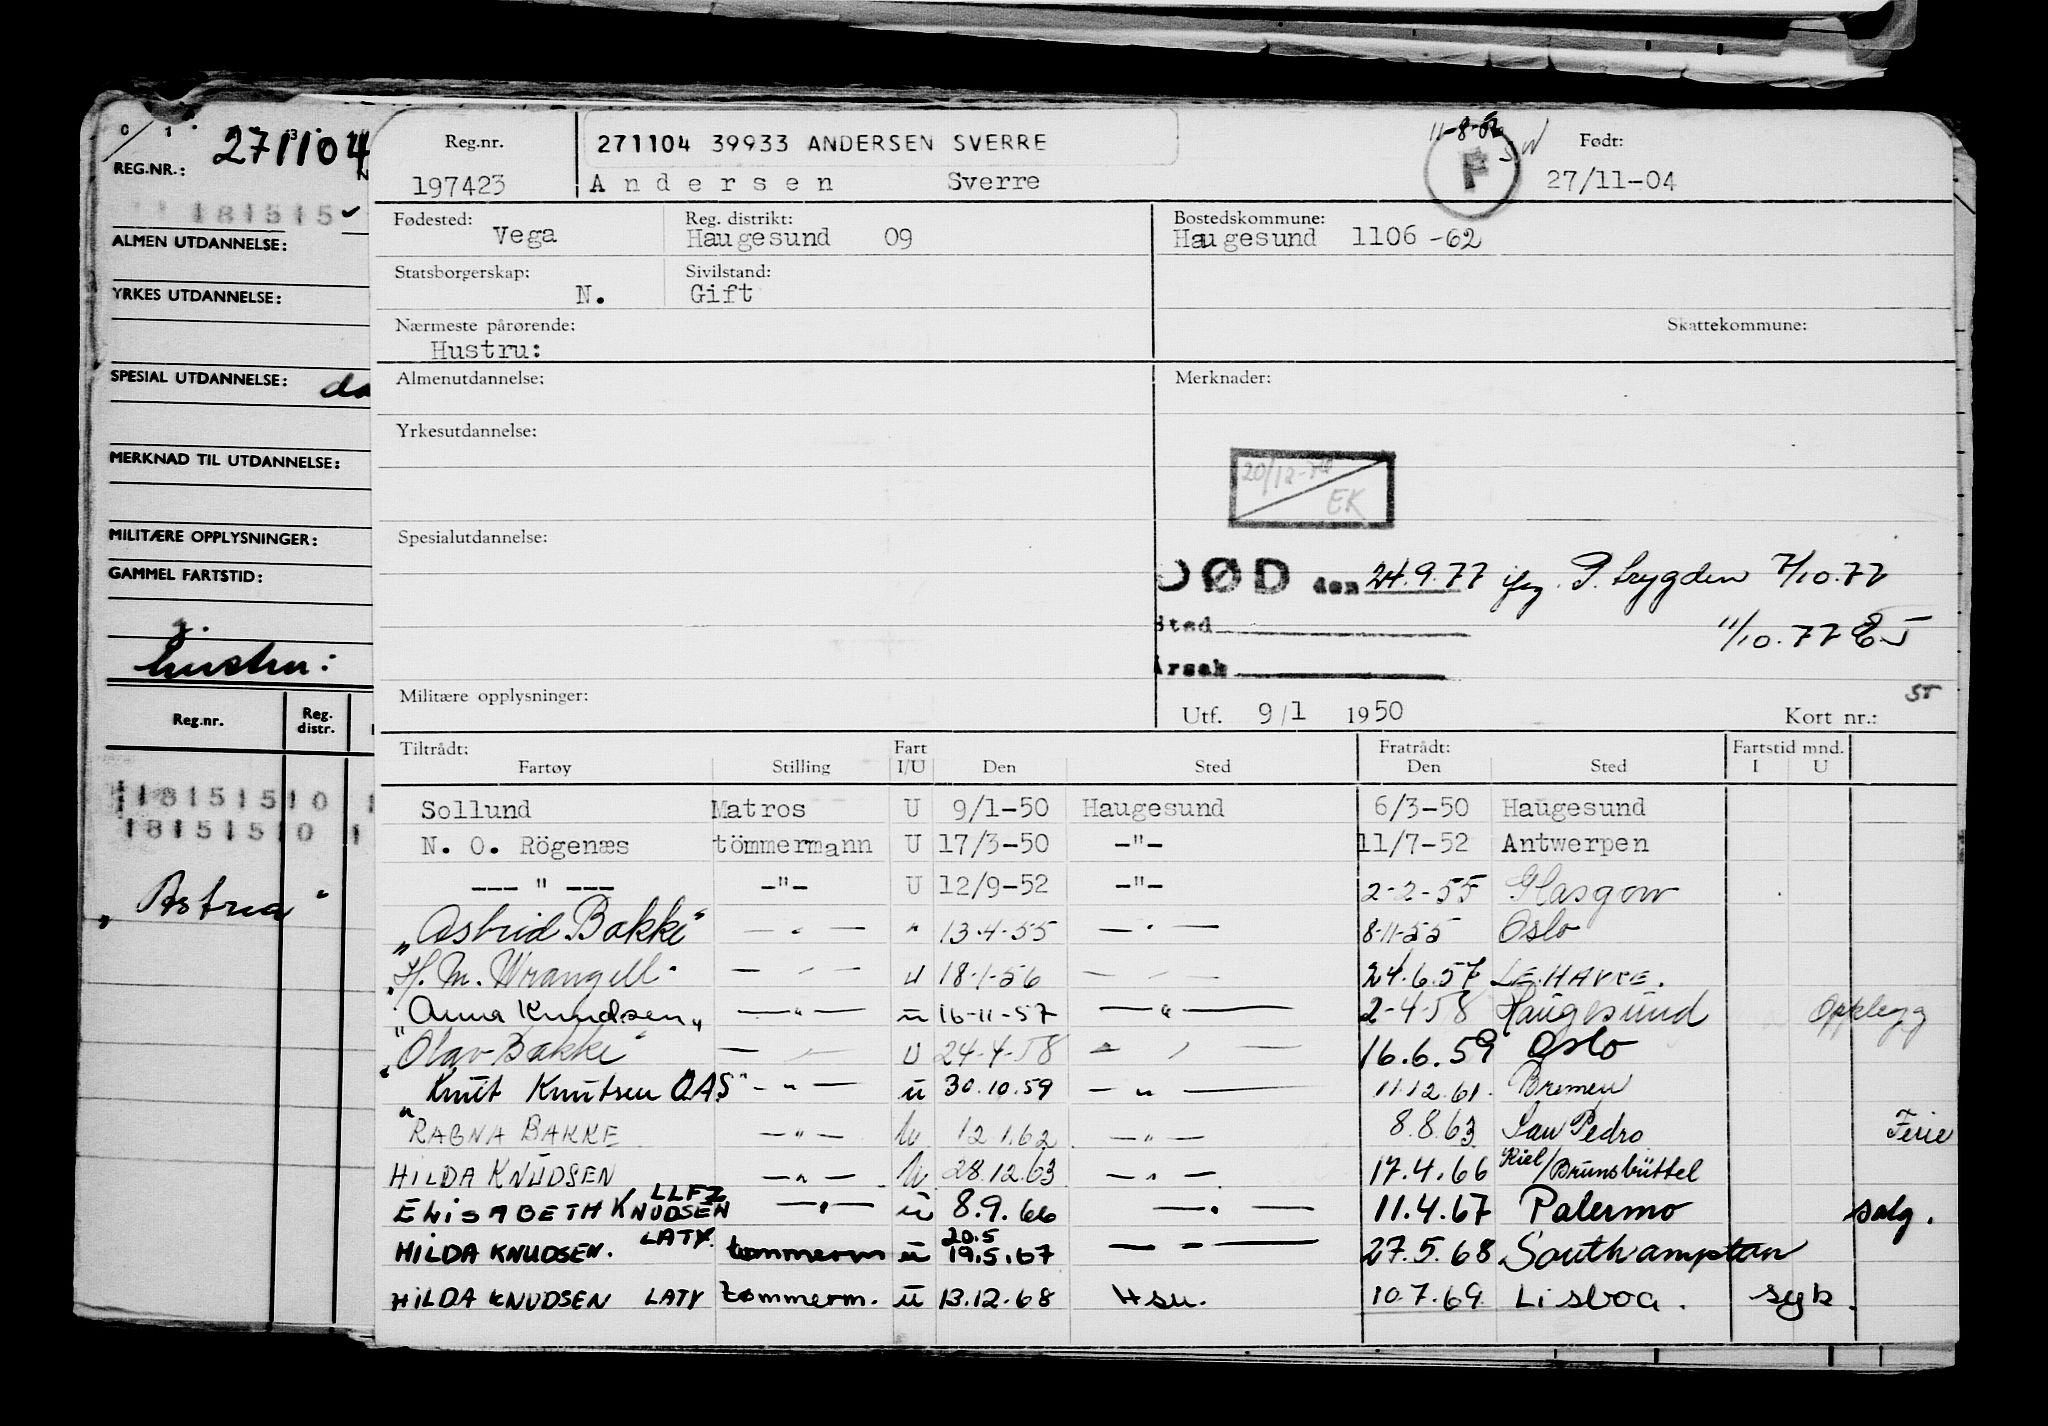 REG.NR.: 271104
181515
ALMEN UTDANNELSE:
YRKES UTDANNELSE:
SPESIAL UTDANNELSE:
MERKNAD TIL UTDANNELSE:
MILITÆRE OPPLYSNINGER:
GAMMEL FARTSTID:
g.
hustru:
Reg.nr. Reg. distr.
181515 0 1
181515 0 1
"Astrea"
Reg.nr. 271104 39933 ANDERSEN SVERRE 11-8-66 F Født:
197423 Andersen Sverre 27/11-04
Fødested: Vega Reg. distrikt: Haugesund 09 Bostedskommune: Haugesund 1106 -62
Statsborgerskap: N. Sivilstand: Gift
Nærmeste pårørende: Skattekommune:
Hustru:
Almenutdannelse: Merknader:
Yrkesutdannelse:
20/12-70 EK
Spesialutdannelse:
DØD den 24.9.77 ifg. P. trygden 7/10.77
Sted 11/10.77 EJ
Årsak
Militære opplysninger: Utf. 9/1 1950 Kort nr.:
Tiltrådt: Fart Fratrådt: Fartstid mnd.
Fartøy Stilling I/U Den Sted Den Sted I U
Sollund Matros U 9/1-50 Haugesund 6/3-50 Haugesund
N. O. Rögenæs tömmermann U 17/3-50 -"- 11/7-52 Antwerpen
--- " --- -"- U 12/9-52 -"- 2-2-55 Glasgow
"Astrid Bakke" - " - " 13.4-55 - " - 8-11-55 Oslo
"H. M. Wrangell" - " - u 18-1-56 - " - 24.6.57 LE HAVRE.
"Anna Knudsen" - " - u 16-11-57 - " - 2-4-58 Haugesund Opplegg
"Olav Bakke" - " - U 24-4-58 - " - 16.6.59 Oslo
"Knut Knutsen OAS" - " - u 30.10.59 - " - 11.12.61. Bremen
"RAGNA BAKKE - " - u 12.1.62. - " - 8.8.63 San Pedro Ferie
HILDA KNUDSEN - " - u 28.12.63 - " - 17.4.66 Kiel/Brunsbüttel
ELISABETH KNUDSEN LLFZ - " - u 8.9.66 - " - 11.4.67 Palermo salg.
HILDA KNUDSEN. LATY. tømmerm u 20.5 19.5.67 - " - 27.5.68 Southampton
HILDA KNUDSEN LATY Tømmerm. u 13.12.68 Hsu. 10.7.69. Lisboa. syk.